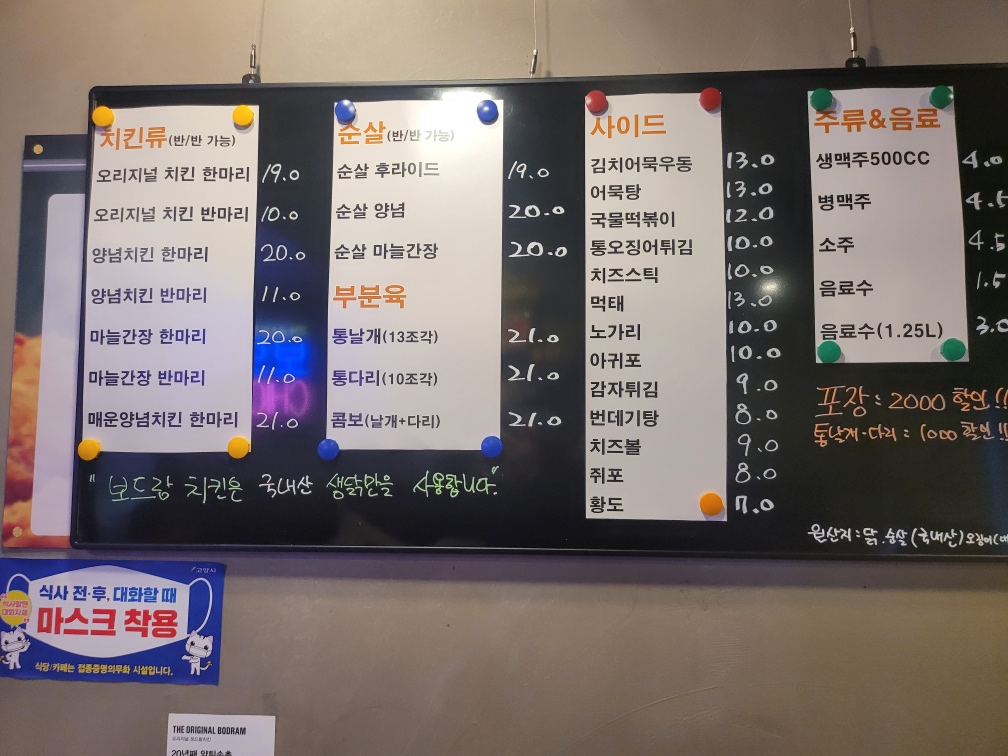 치킨류(반/반 가능)
오리지널 치킨 한마리 19.0
오리지널 치킨 반마리 10.0
양념치킨 한마리 20.0
양념치킨 반마리 11.0
마늘간장 한마리 20.0
마늘간장 반마리 11.0
매운양념치킨 한마리 21.0
순살(반/반 가능)
순살 후라이드 19.0
순살 양념 20.0
순살 마늘간장 20.0
부분육
통날개(13조각) 21.0
통다리(10조각) 21.0
콤보(날개+다리) 21.0
"보드람 치킨은 국내산 생닭만을 사용합니다."
사이드
김치어묵우동 13.0
어묵탕 13.0
국물떡볶이 12.0
통오징어튀김 10.0
치즈스틱 10.0
먹태 13.0
노가리 10.0
아귀포 10.0
감자튀김 9.0
번데기탕 8.0
치즈볼 9.0
쥐포 8.0
황도 7.0
주류&음료
생맥주500CC 4.0
병맥주 4.5
소주 4.5
음료수 1.5
음료수(1.25L) 3.0
포장: 2000 할인!!
통날개·다리: 1000 할인!!
원산지: 닭.순살(국내산) 오징어(
고양시
식사 전·후, 대화할 때
마스크 착용
식사할땐
대화자제
식당/카페는 접종증명의무화 시설입니다.
THE ORIGINAL BODRAM
오리지널 보드람치킨
20년째